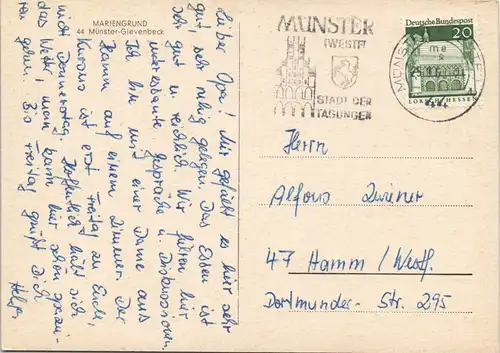 MARIENGRUND
44 Münster-Gievenbeck
Lieber Opa! Mir gefällt es hier sehr
gut, sehr ruhig gelegen. Das Essen ist
sehr gut u. reichlich. Wir führen hier
interessante Gespräche u. Diskussionen.
Ich bin mit einer Dame aus
Hamm auf einem Zimmer. Der
Kursus ist erst Freitag zu Ende,
nicht Donnerstag. Hoffentlich hält sich
das Wetter, man kann hier schön spazie-
ren gehen. Bis Freitag grüßt Dich
Helga
MÜNSTER
(WESTF)
STADT DER
TAGUNGEN
Deutsche Bundespost
20
LORSCH/HESSEN
MÜNSTER
me
44
Herrn
Alfons Zwiener
47 Hamm / Westf.
Dortmunder- Str. 295